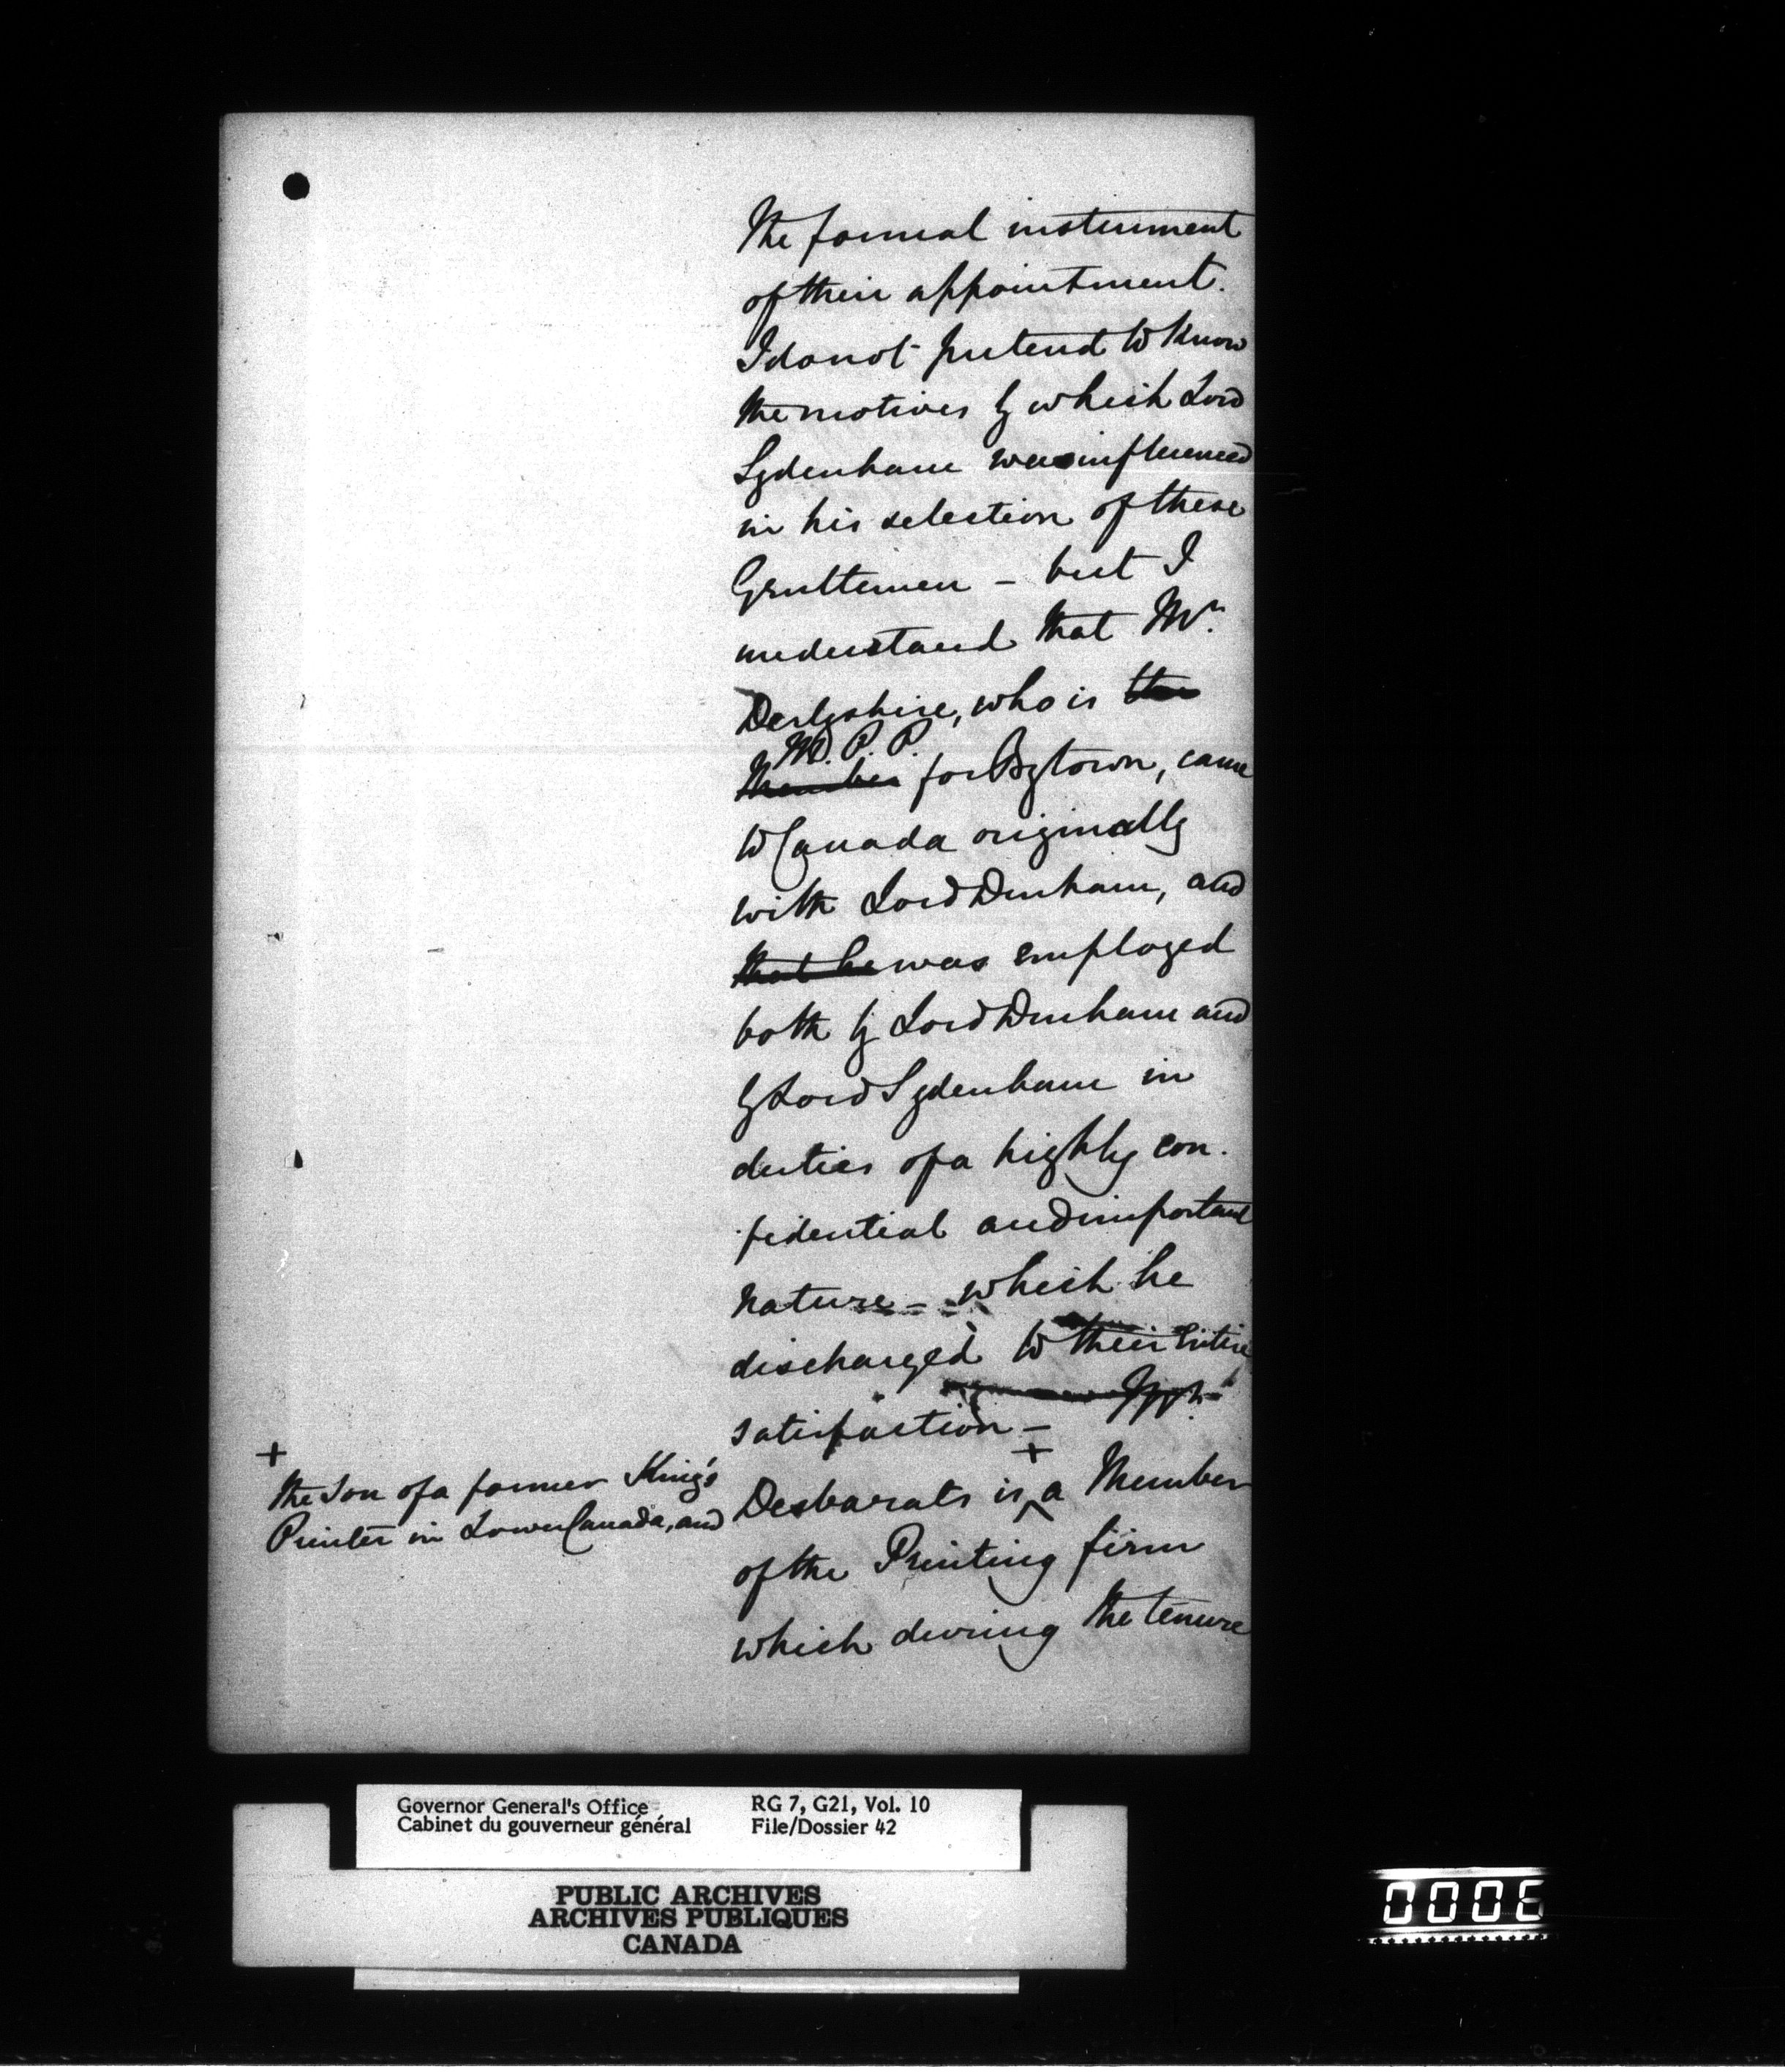 The formal instrument
of their appointment.
I do not pretend to know
the motives by which Lord
Sydenham was influenced
in his selection of these
Gentlemen – but I
understand that Mr.
Derbyshire, who is the
M. P. P.
Member for Bytown, came
to Canada originally
with Lord Durham, and
that he was employed
both by Lord Durham and
by Lord Sydenham in
duties of a highly con-
fidential and important
nature – which he
discharged to their entire
satisfaction –
+
the son of a former King's
Printer in Lower Canada, and
+
Desbarats is ‸ a Member
of the Printing firm
which during the tenure
Governor General's Office
Cabinet du gouverneur général
RG 7, G21, Vol. 10
File/Dossier 42
PUBLIC ARCHIVES
ARCHIVES PUBLIQUES
CANADA
0006